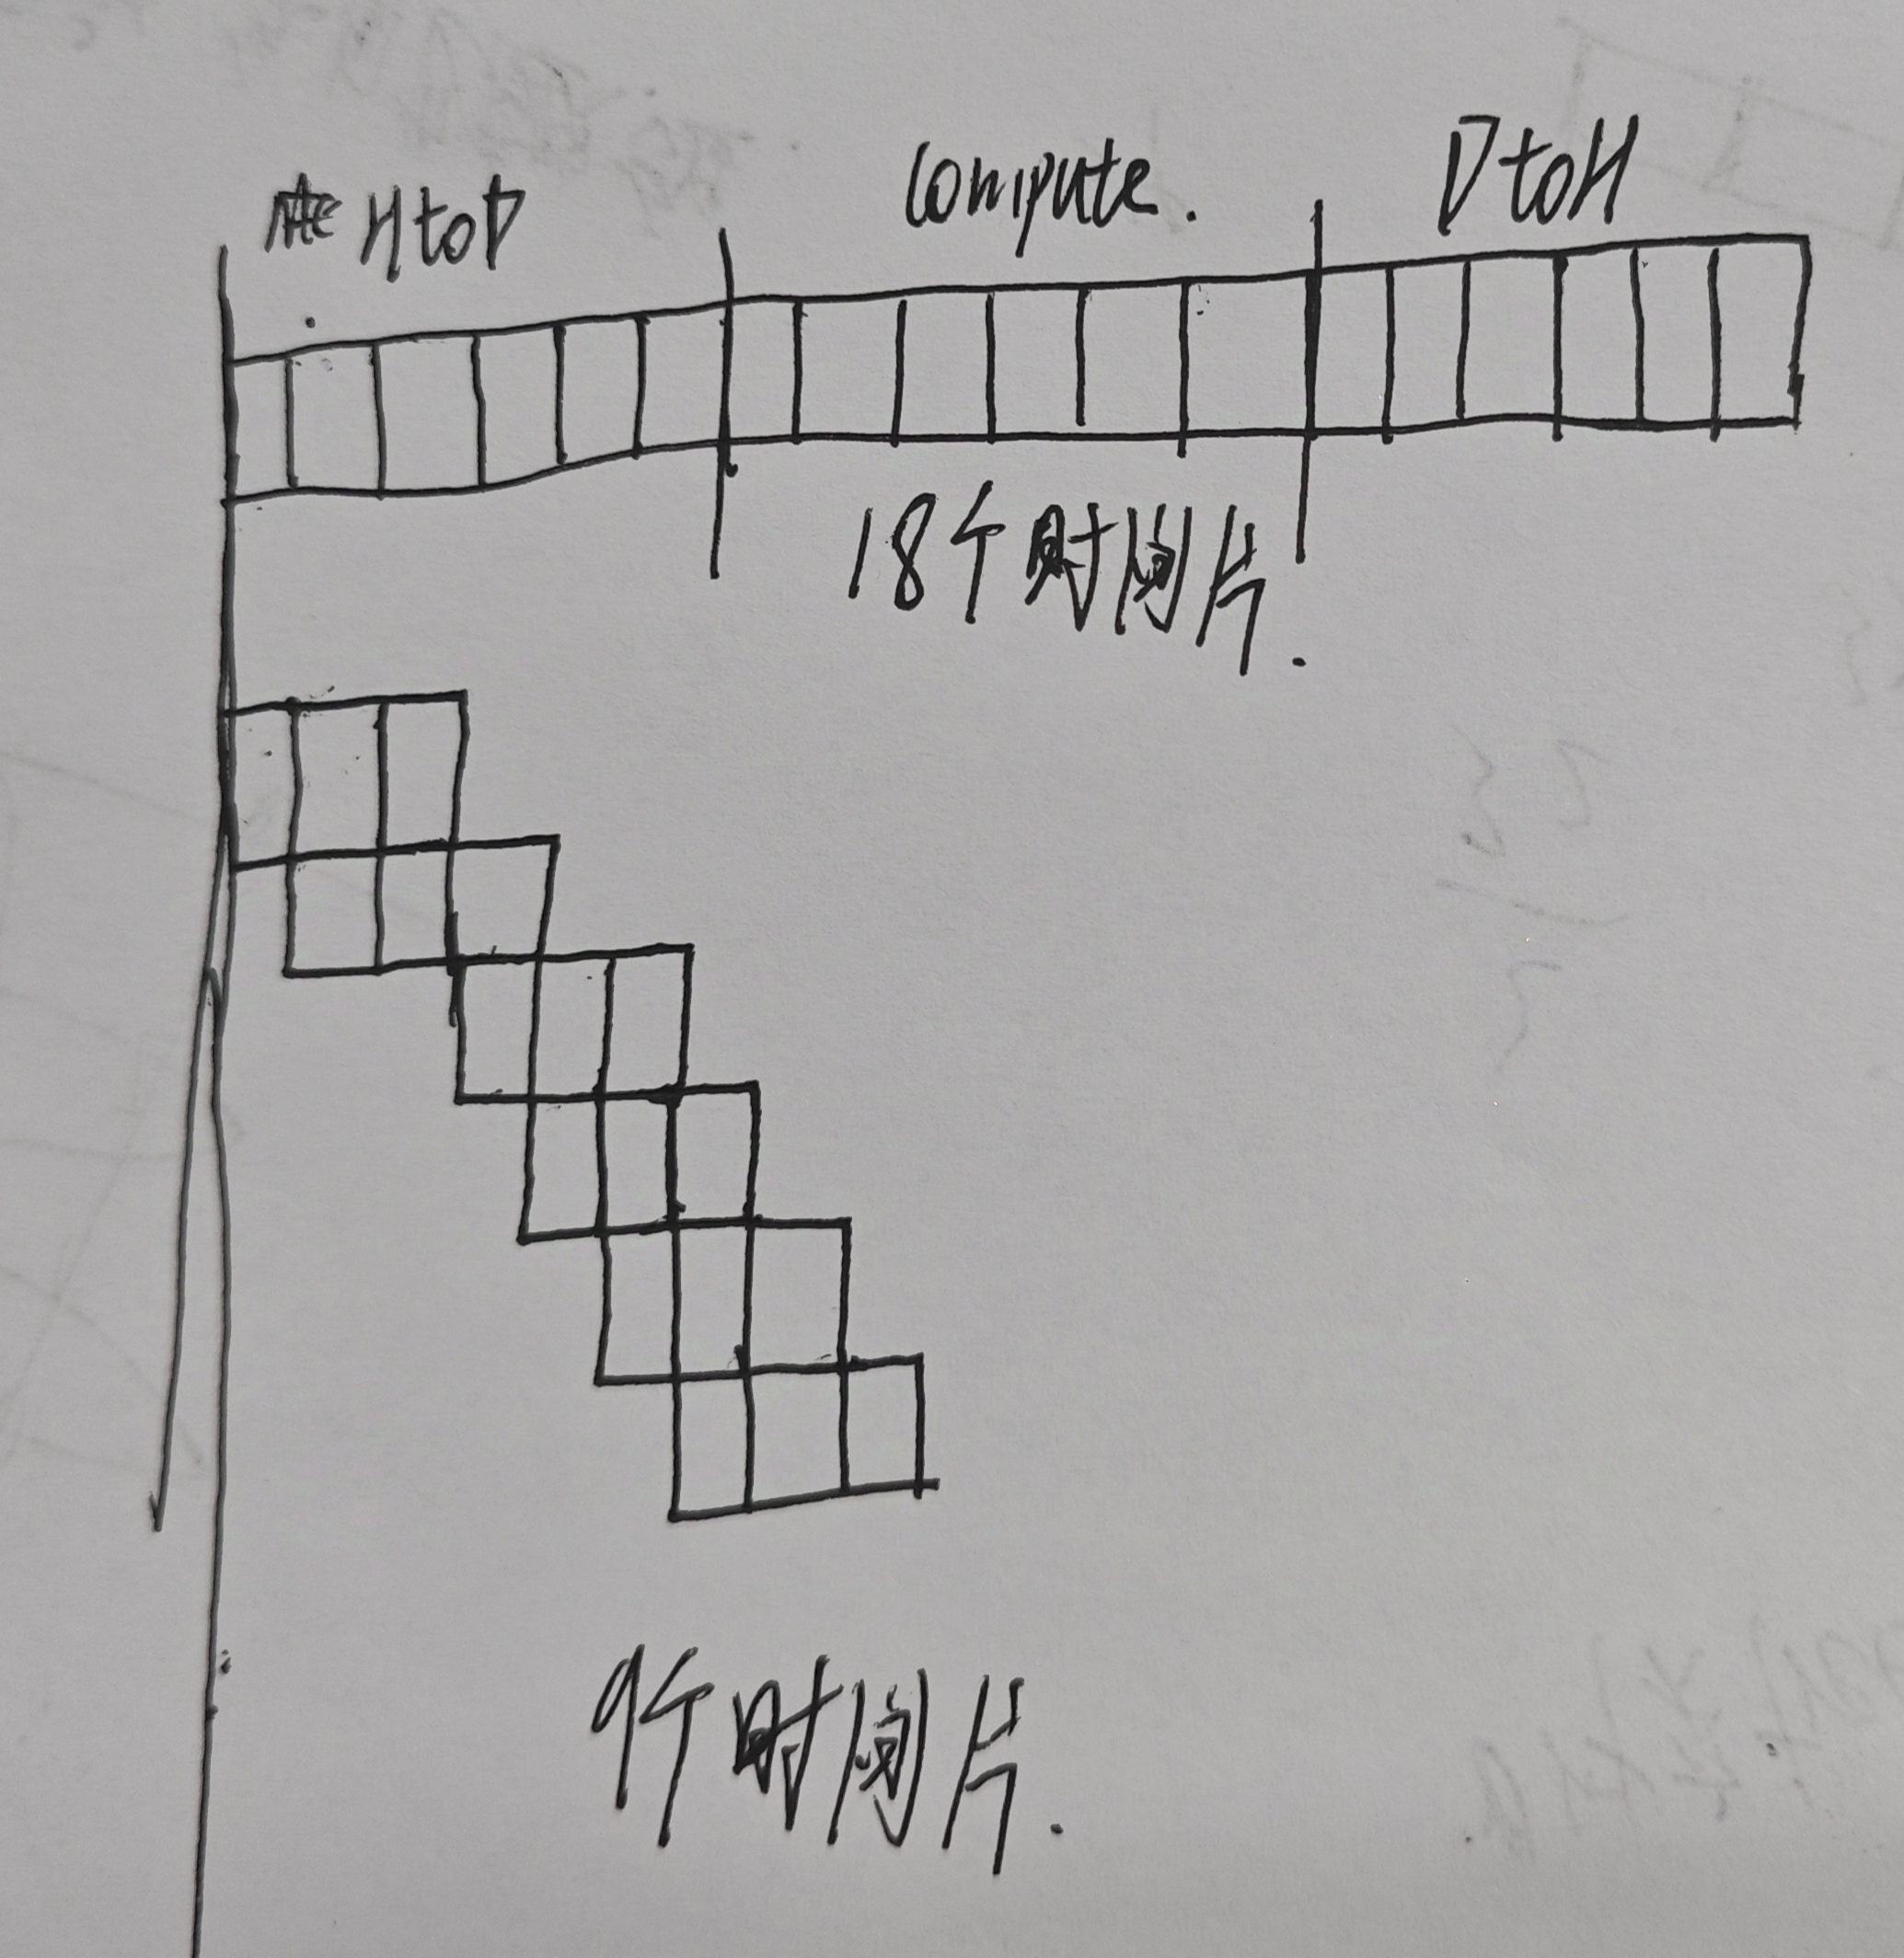 HtoD
Compute.
DtoH
18个时间片.
9个时间片.